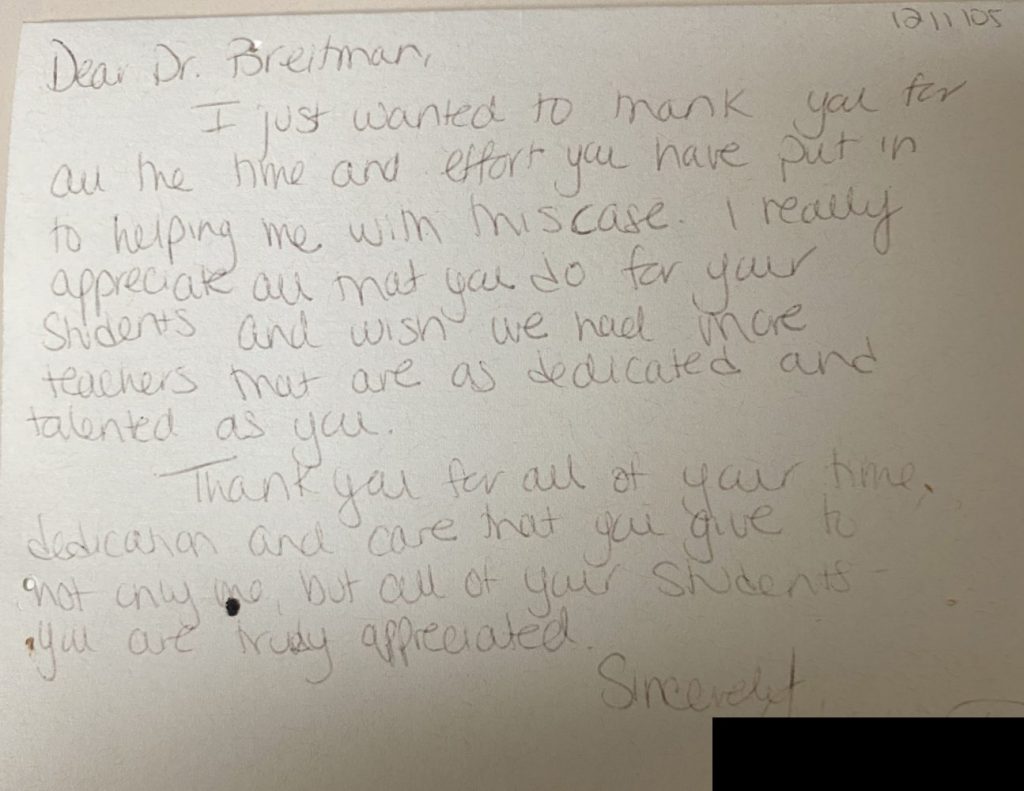 12/1/05
Dear Dr. Breitman,
I just wanted to thank you for
all the time and effort you have put in
to helping me with this case. I really
appreciate all that you do for your
students and wish we had more
teachers that are as dedicated and
talented as you.
Thank you for all of your time,
dedication and care that you give to
not only me, but all of your students -
you are truly appreciated.
Sincerely,